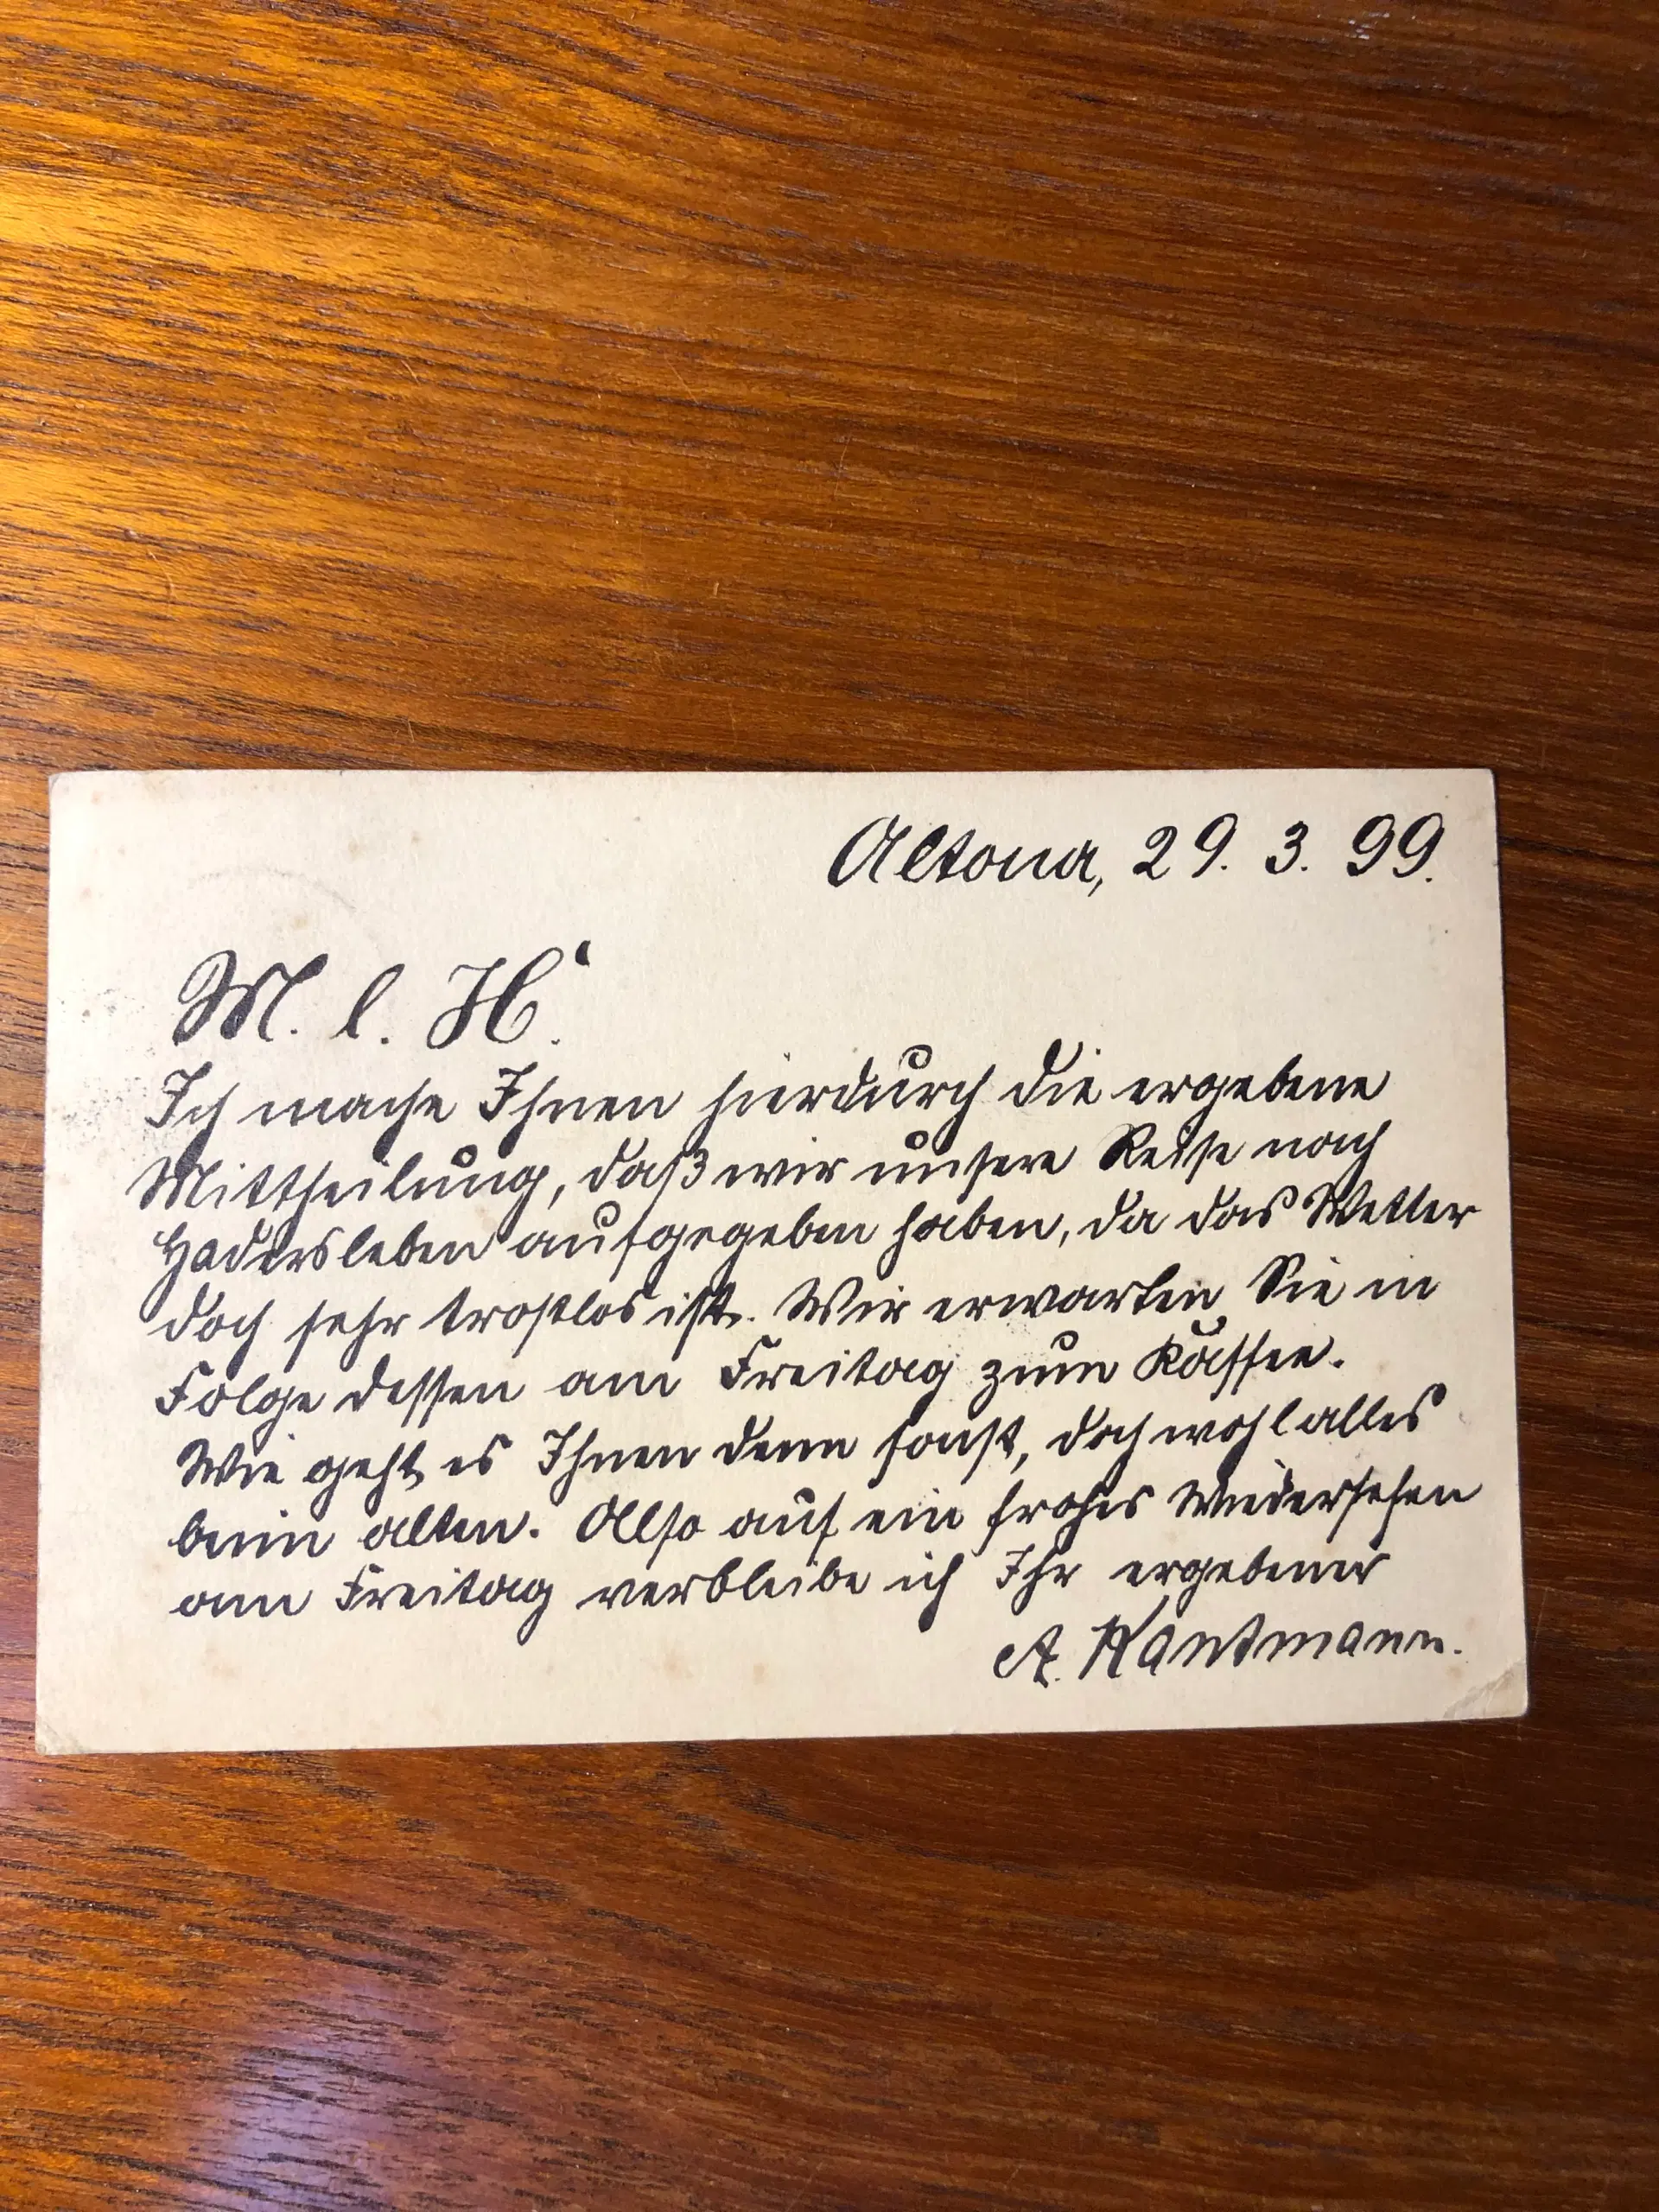 Altona, 29. 3. 99.
M. l. H.
Ich mache Ihnen hierdurch die ergebene
Mittheilung, daß wir unsere Reise nach
Hadersleben aufgegeben haben, da das Wetter
doch sehr trostlos ist. Wir erwarten Sie in
Folge dessen am Freitag zum Kaffee.
Wie geht es Ihnen denn sonst, doch wohl alles
beim alten. Also auf ein frohes Wiedersehen
am Freitag verbleibe ich Ihr ergebener
A. Kantmann.